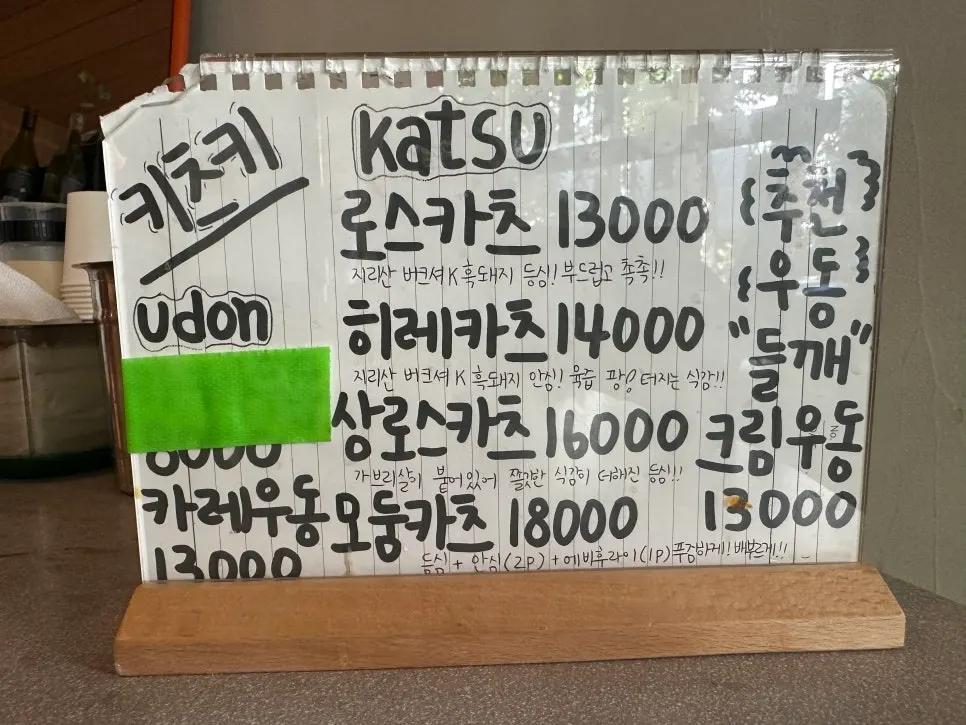 키츠키
udon
8000
카레우동
13000
katsu
로스카츠 13000
지리산 버크셔K 흑돼지 등심! 부드럽고 촉촉!!
히레카츠 14000
지리산 버크셔K 흑돼지 안심! 육즙 팡! 터지는 식감!!
상로스카츠 16000
가브리살이 붙어있어 쫄깃한 식감이 더해진 등심!!
모둠카츠 18000
등심 + 안심(2P) + 에비후라이(1P) 푸짐하게! 배부르게!!
{추천}
{우동}
"들깨"
크림우동
13000